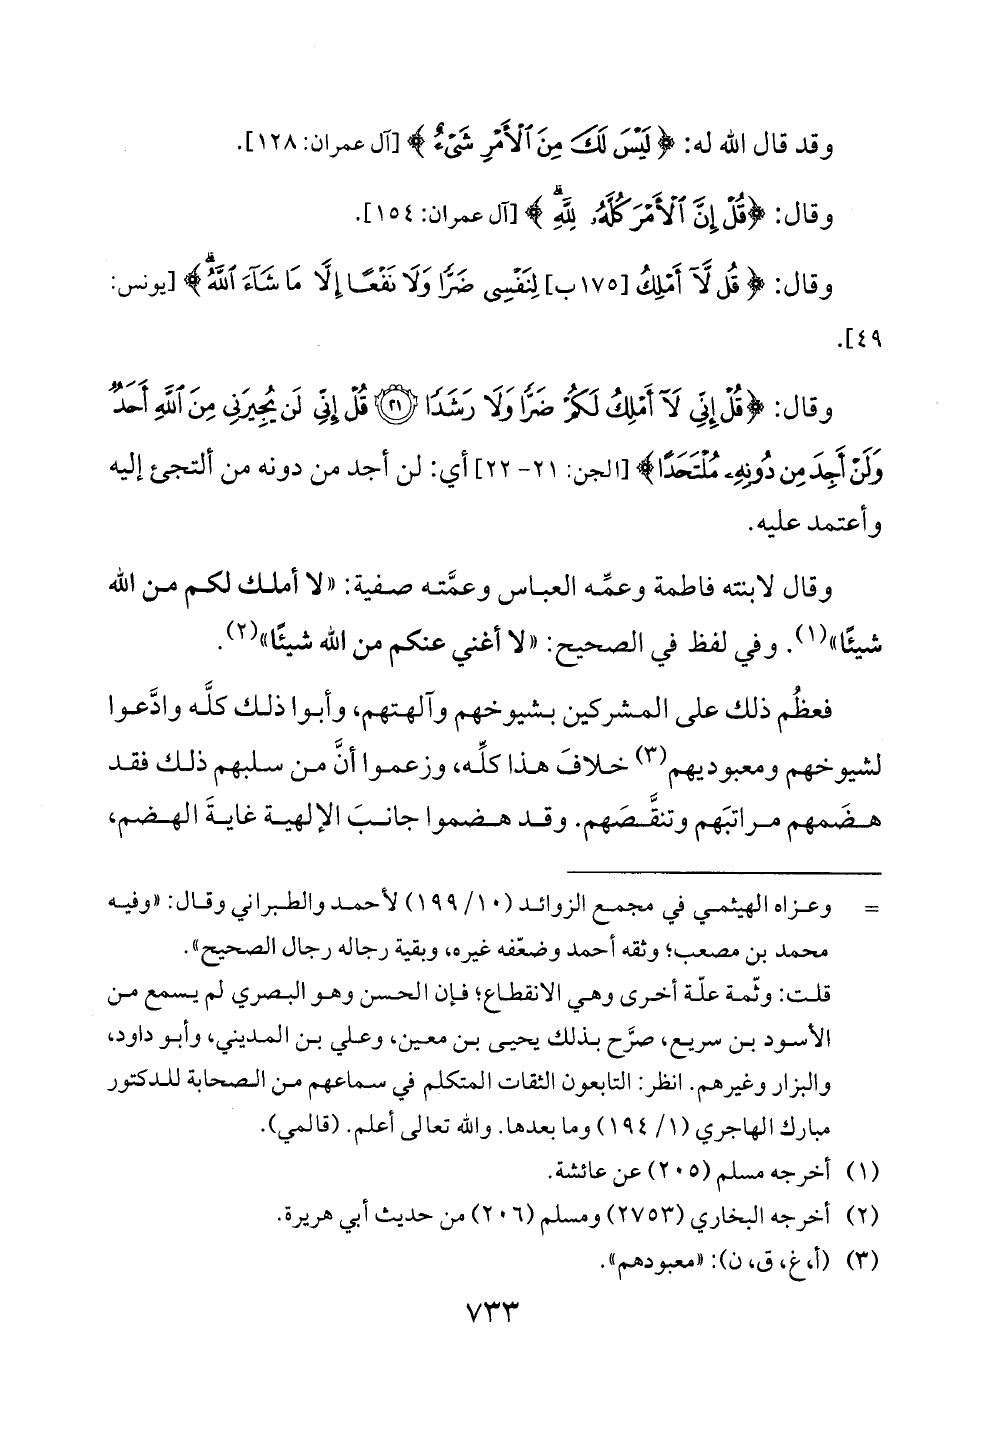 وقد قال الله له: ﴿لَيْسَ لَكَ مِنَ ٱلْأَمْرِ شَىْءٌ﴾ [آل عمران: ١٢٨].
وقال: ﴿قُلْ إِنَّ ٱلْأَمْرَ كُلَّهُۥ لِلَّهِ ۗ﴾ [آل عمران: ١٥٤].
وقال: ﴿قُل لَّآ أَمْلِكُ [١٧٥ب] لِنَفْسِى ضَرًّا وَلَا نَفْعًا إِلَّا مَا شَآءَ ٱللَّهُ ۗ﴾ [يونس:
٤٩].
وقال: ﴿قُلْ إِنِّى لَآ أَمْلِكُ لَكُمْ ضَرًّا وَلَا رَشَدًا ٢١ قُلْ إِنِّى لَن يُجِيرَنِى مِنَ ٱللَّهِ أَحَدٌ
وَلَنْ أَجِدَ مِن دُونِهِۦ مُلْتَحَدًا﴾ [الجن: ٢١- ٢٢] أي: لن أجد من دونه من ألتجئ إليه
وأعتمد عليه.
وقال لابنته فاطمة وعمِّه العباس وعمَّته صفية: «لا أملك لكم من الله
شيئًا»(١). وفي لفظ في الصحيح: «لا أغني عنكم من الله شيئًا»(٢).
فعظُم ذلك على المشركين بشيوخهم وآلهتهم، وأبوا ذلك كلَّه وادَّعوا
لشيوخهم ومعبوديهم(٣) خلافَ هذا كلِّه، وزعموا أنَّ من سلبهم ذلك فقد
هضَمهم مراتبَهم وتنقَّصَهم. وقد هضموا جانبَ الإلهية غايةَ الهضم،
= وعزاه الهيثمي في مجمع الزوائد (١٠/ ١٩٩) لأحمد والطبراني وقال: «وفيه
محمد بن مصعب؛ وثقه أحمد وضعّفه غيره، وبقية رجاله رجال الصحيح».
قلت: وثّمة علّة أخرى وهي الانقطاع؛ فإن الحسن وهو البصري لم يسمع من
الأسود بن سريع، صرَّح بذلك يحيى بن معين، وعلي بن المديني، وأبو داود،
والبزار وغيرهم. انظر: التابعون الثقات المتكلم في سماعهم من الصحابة للدكتور
مبارك الهاجري (١/ ١٩٤) وما بعدها. والله تعالى أعلم. (قالمي).
(١) أخرجه مسلم (٢٠٥) عن عائشة.
(٢) أخرجه البخاري (٢٧٥٣) ومسلم (٢٠٦) من حديث أبي هريرة.
(٣) (أ، غ، ق، ن): «معبودهم».
٧٣٣